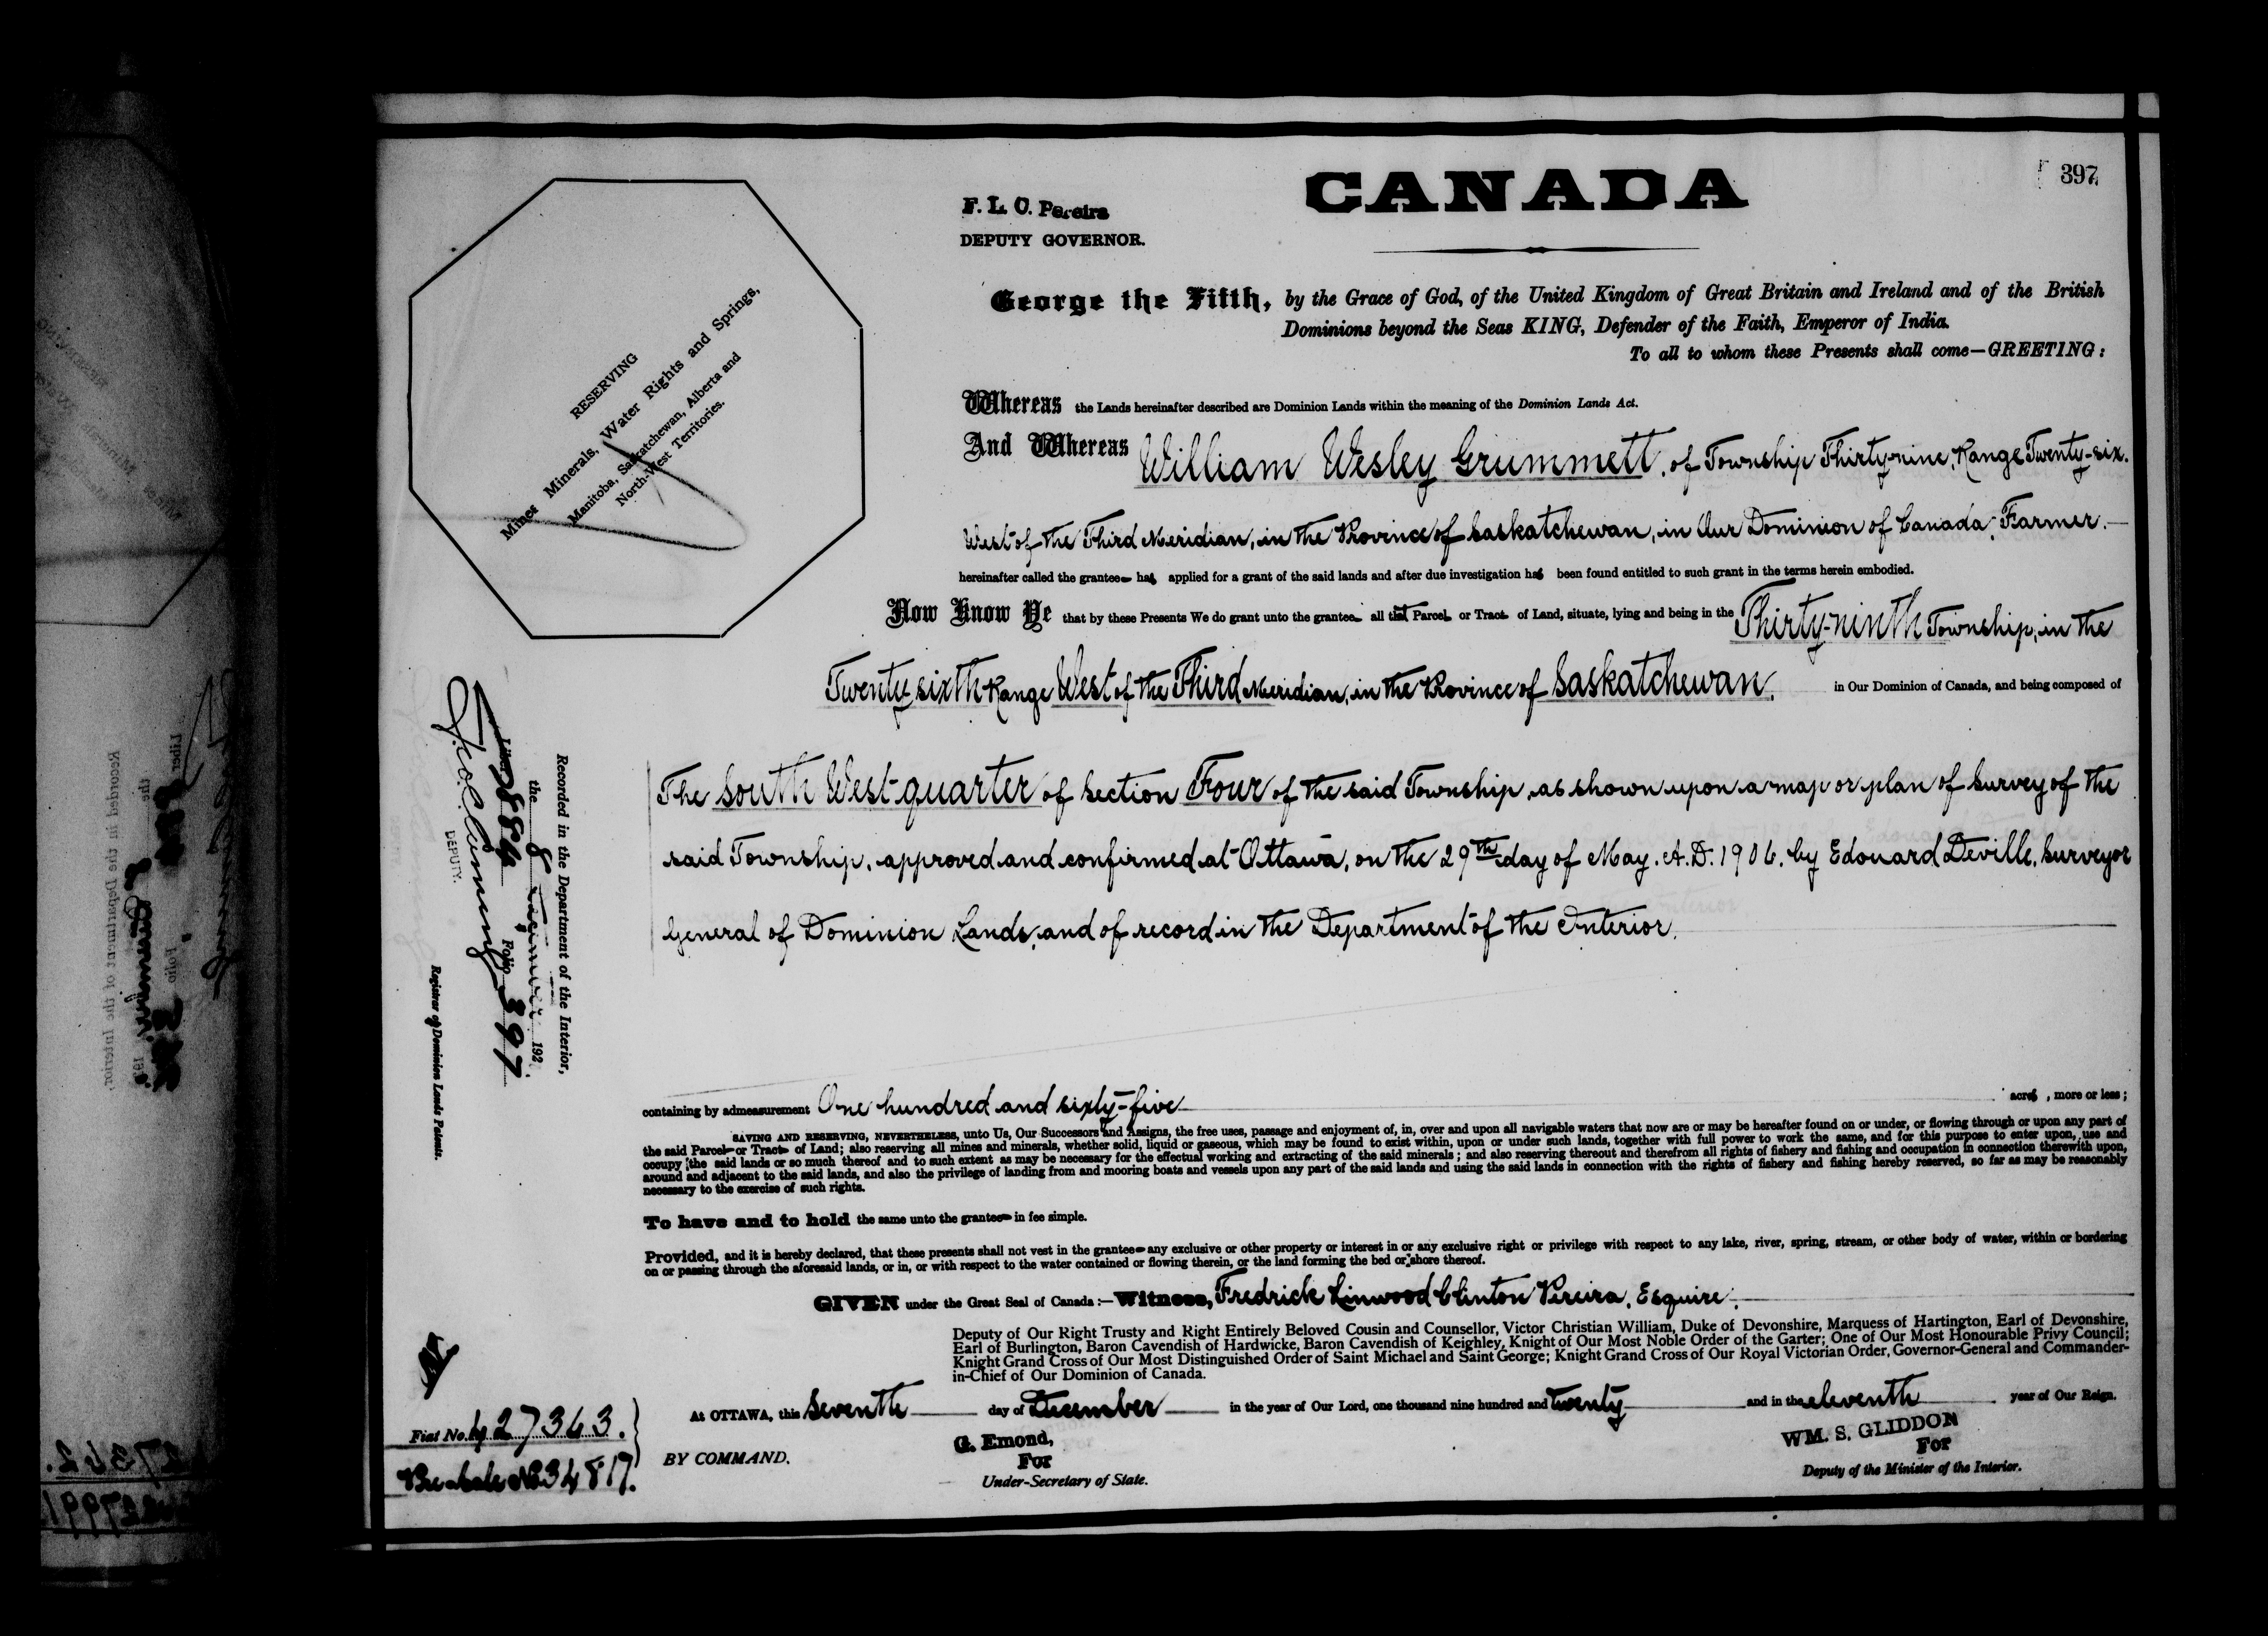 397
CANADA
F. L. C. Pereira
DEPUTY GOVERNOR.
George the Fifth, by the Grace of God, of the United Kingdom of Great Britain and Ireland and of the British
Dominions beyond the Seas KING, Defender of the Faith, Emperor of India.
To all to whom these Presents shall come—GREETING:
RESERVING
Mines Minerals, Water Rights and Springs,
Manitoba, Saskatchewan, Alberta and
North-West Territories.
Whereas the Lands hereinafter described are Dominion Lands within the meaning of the Dominion Lands Act.
And Whereas William Wesley Grummett, of Township Thirty-nine, Range Twenty-six.
West of the Third Meridian, in the Province of Saskatchewan, in Our Dominion of Canada, Farmer.—
hereinafter called the grantee has applied for a grant of the said lands and after due investigation has been found entitled to such grant in the terms herein embodied.
Now Know Ye that by these Presents We do grant unto the grantee all that Parcel or Tract of Land, situate, lying and being in the Thirty-ninth Township, in the
Twenty-sixth Range West of the Third Meridian, in the Province of Saskatchewan, in Our Dominion of Canada, and being composed of
The South West quarter of Section Four of the said Township, as shown upon a map or plan of survey of the
said Township, approved and confirmed at Ottawa, on the 29th day of May, A.D. 1906, by Edouard Deville, Surveyor
General of Dominion Lands, and of record in the Department of the Interior.
Recorded in the Department of the Interior,
the 8 December 192
Liber 884 Folio 397
DEPUTY.
Registrar of Dominion Lands Patents.
containing by admeasurement One hundred and sixty-five acres, more or less;
SAVING AND RESERVING, NEVERTHELESS, unto Us, Our Successors and Assigns, the free uses, passage and enjoyment of, in, over and upon all navigable waters that now are or may be hereafter found on or under, or flowing through or upon any part of
the said Parcel or Tract of Land; also reserving all mines and minerals, whether solid, liquid or gaseous, which may be found to exist within, upon or under such lands, together with full power to work the same, and for this purpose to enter upon, use and
occupy the said lands or so much thereof and to such extent as may be necessary for the effectual working and extracting of the said minerals; and also reserving thereout and therefrom all rights of fishery and fishing and occupation in connection therewith upon,
around and adjacent to the said lands, and also the privilege of landing from and mooring boats and vessels upon any part of the said lands and using the said lands in connection with the rights of fishery and fishing hereby reserved, so far as may be reasonably
necessary to the exercise of such rights.
To have and to hold the same unto the grantee in fee simple.
Provided, and it is hereby declared, that these presents shall not vest in the grantee any exclusive or other property or interest in or any exclusive right or privilege with respect to any lake, river, spring, stream, or other body of water, within or bordering
on or passing through the aforesaid lands, or in, or with respect to the water contained or flowing therein, or the land forming the bed or shore thereof.
GIVEN under the Great Seal of Canada:—Witness, Fredrick Linwood Clinton Pereira, Esquire,
Deputy of Our Right Trusty and Right Entirely Beloved Cousin and Counsellor, Victor Christian William, Duke of Devonshire, Marquess of Hartington, Earl of Devonshire,
Earl of Burlington, Baron Cavendish of Hardwicke, Baron Cavendish of Keighley, Knight of Our Most Noble Order of the Garter; One of Our Most Honourable Privy Council;
Knight Grand Cross of Our Most Distinguished Order of Saint Michael and Saint George; Knight Grand Cross of Our Royal Victorian Order, Governor-General and Commander-
in-Chief of Our Dominion of Canada.
At OTTAWA, this Seventh day of December in the year of Our Lord, one thousand nine hundred and twenty and in the eleventh year of Our Reign.
BY COMMAND.
G. Emond,
For
Under-Secretary of State.
WM. S. GLIDDON
For
Deputy of the Minister of the Interior.
Fiat No. 427363.
34817.